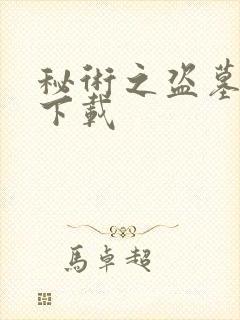 秘術之盗墓
下載
馬卓超